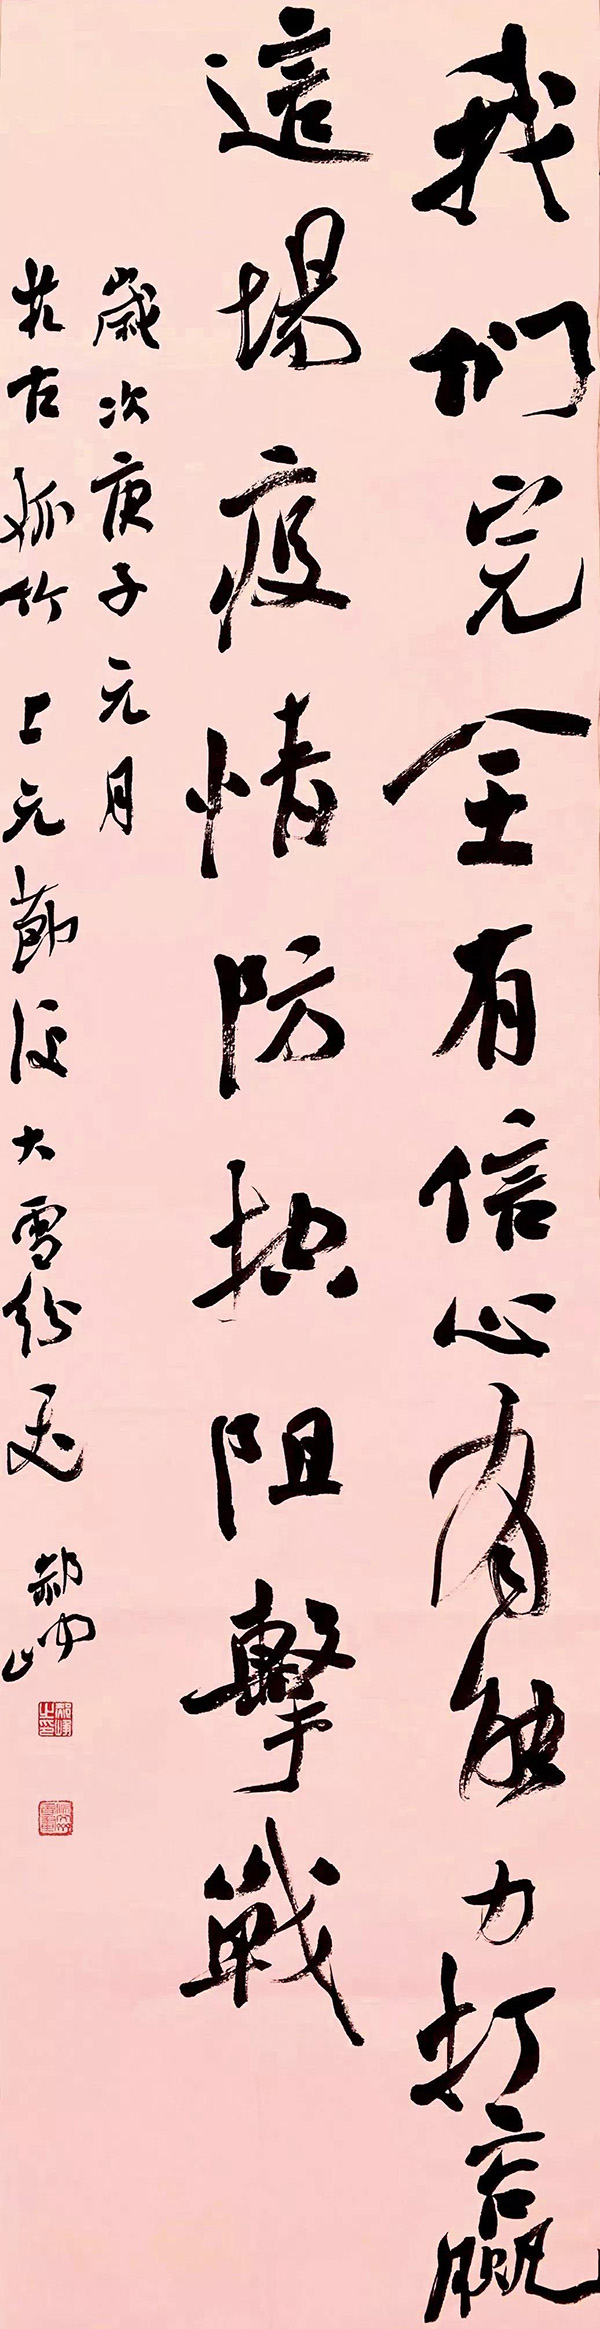 我們完全有信心有能力打贏
這場疫情防控阻擊戰
歲次庚子元月
於古孤竹上元節後大雪紛飛 郝峰
郝峰之印